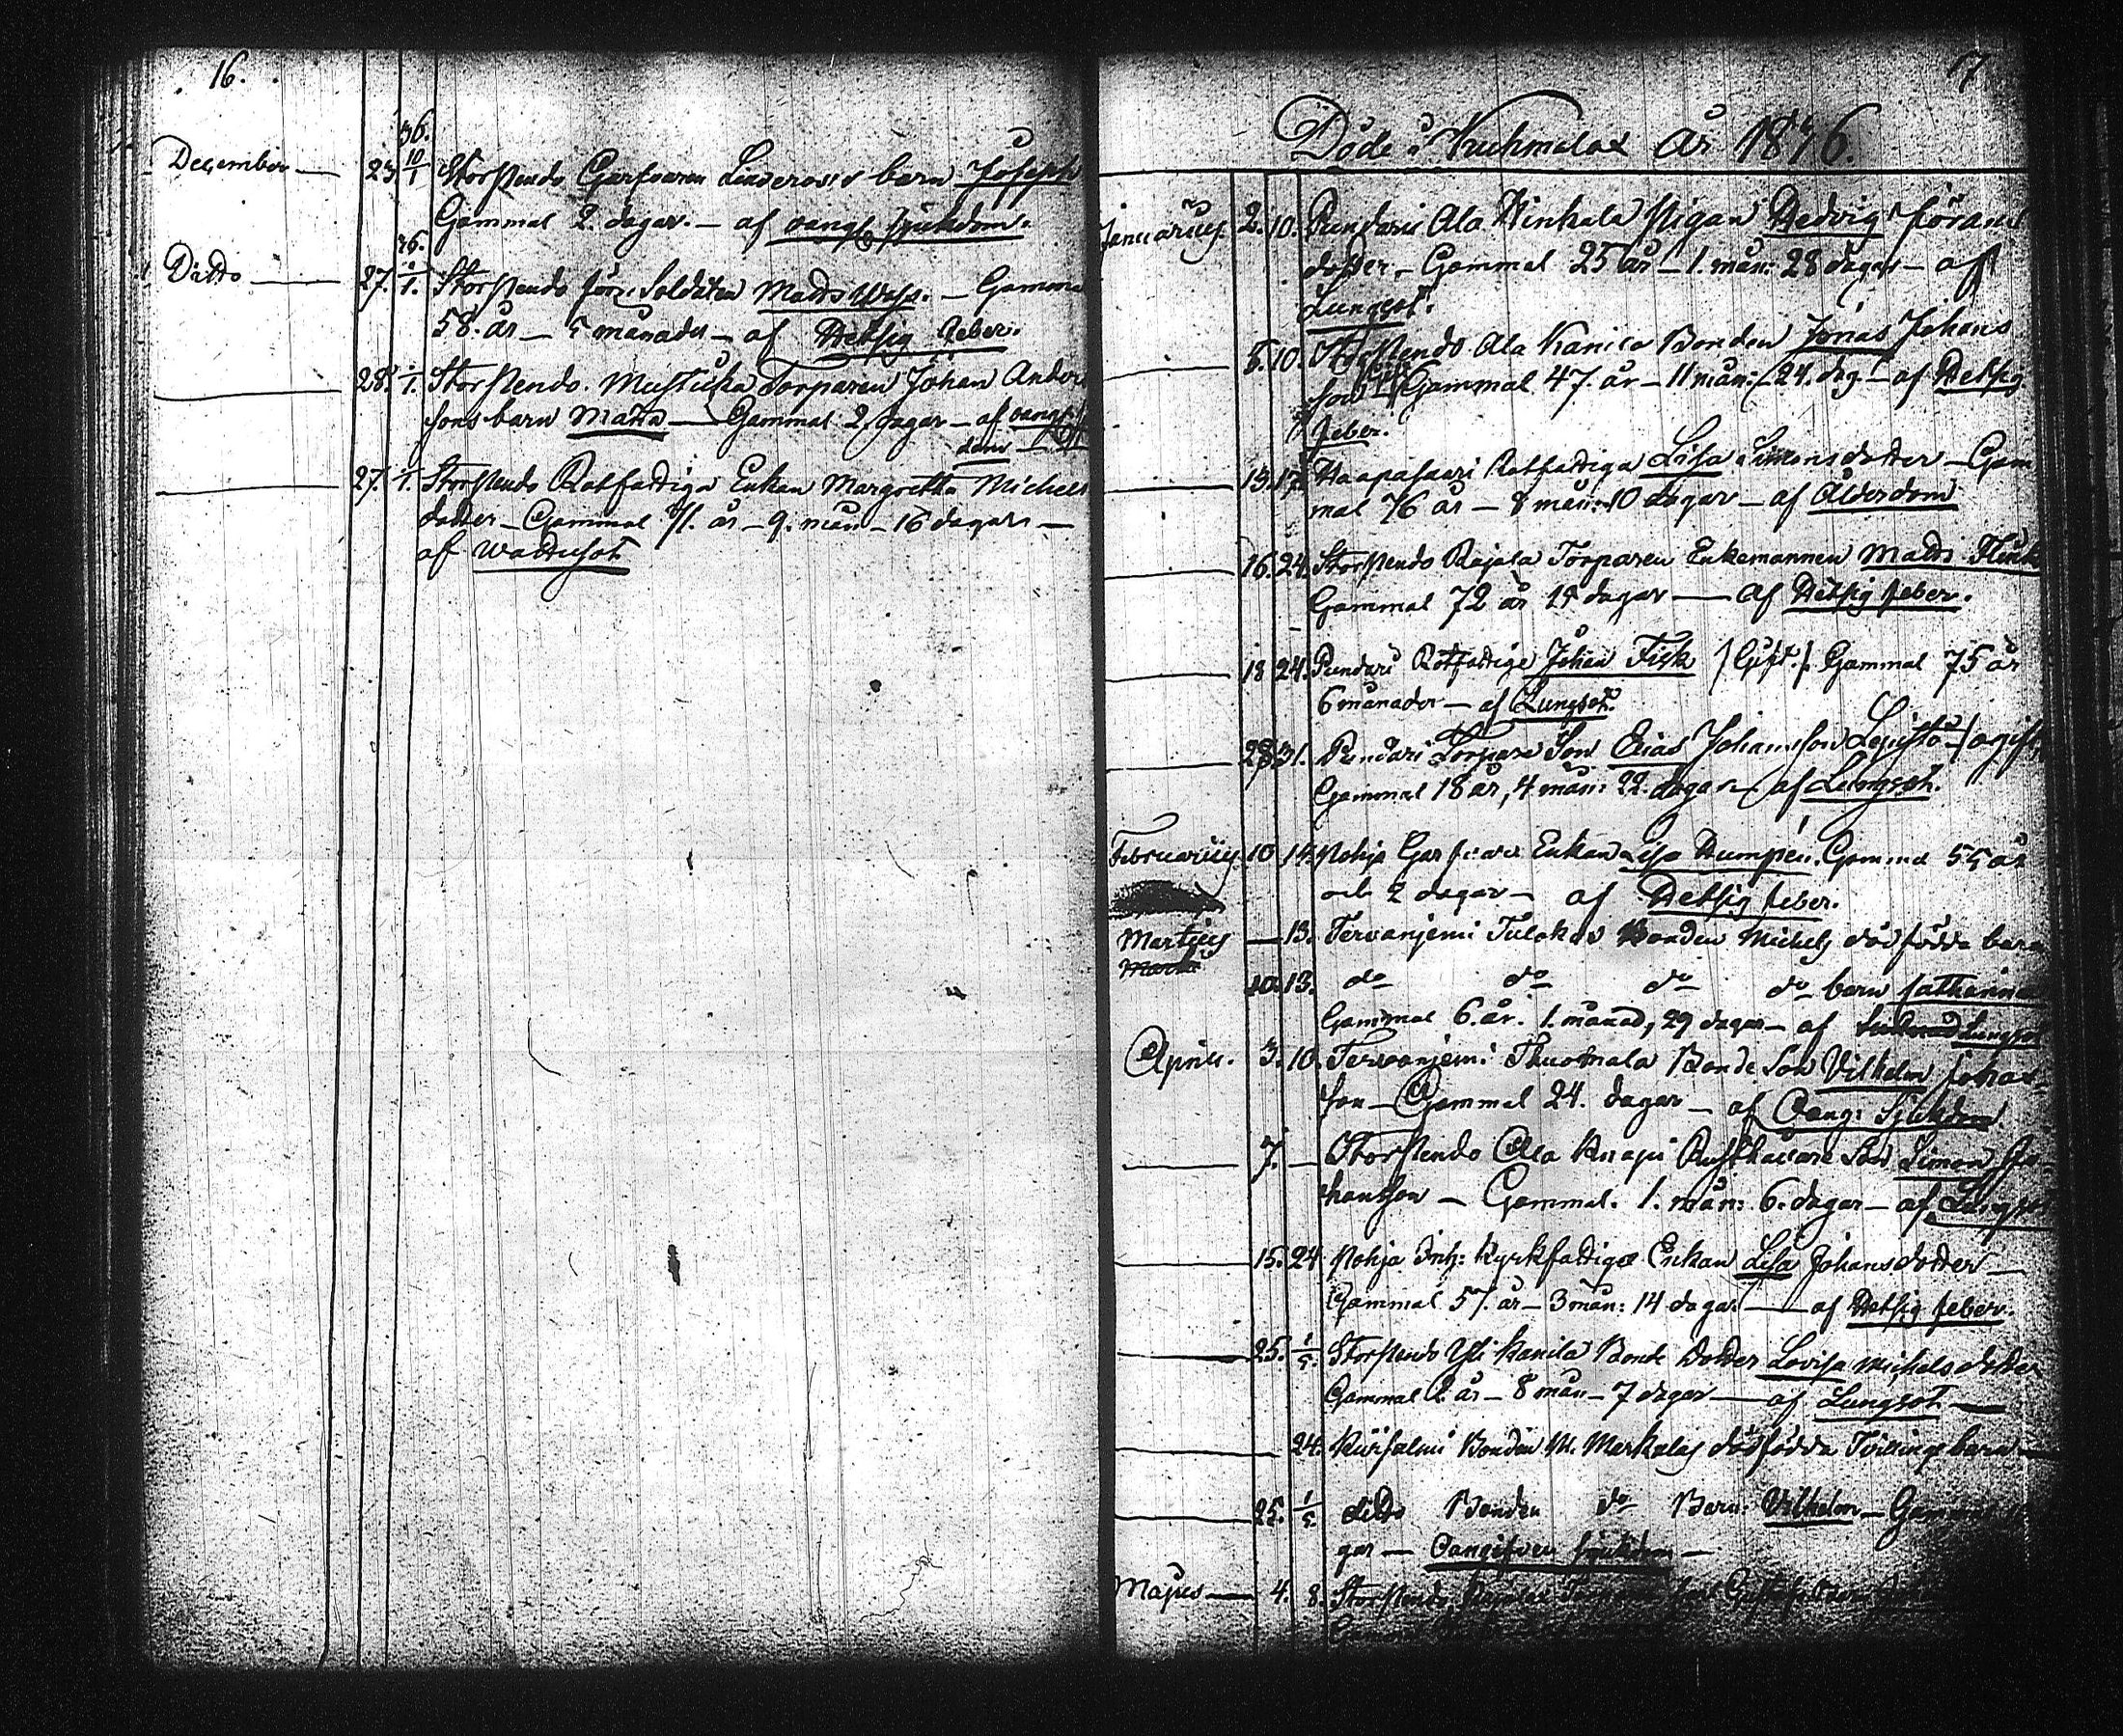 16.
36.
December — 23. 10/1 Storstendo Garfvaren Linderoos's barn Joseph
Gammal 2. dagar. — af oangf sjukdom.
36.
Ditto — 27. 1. Storstendo förre Soldaten Matts Wass. — Gammal
58. år — 5 månader — af Hetsig feber.
28. 1. Storstendo. Mustuka Torparen Johan Anders
sons barn Matts — Gammal 2 dagar — af oangf sjuk
dom —
27. 1. Storstendo Rotfattiga Enkan Margretha Michels
dotter — Gammal 71. år — 9. mån — 16 dagar —
af Wattusot
7
Döde i Kuhmalax År 1836.
Januarius. 2. 10. Pundaris Ala Hinkala Pigan Hedvig Jörans
dotter, — Gammal 25 år — 1. mån: 28 dagar — af
Lungsot.
5. 10. Storstendo Ala Kanila Bonden Jonas Johans
son Gammal 47. år — 11 mån: 24. dag. — af Hetsig
feber.
13. 17. Haapasaari Rotfattiga Lisa Simonsdotter — Gam
mal 76 år — 8 mån: 10 dagar — af Ålderdom
16. 24. Storstendo Rajala Torparen Enkemannen Matts Flink
Gammal 72 år 14 dagar — af Hetsig feber.
18 24. Pundari Rotfattige Johan Fisk /Gift./ Gammal 75 år
6 månader — af Lungsot.
31. Pundari Torpare Son Elias Johansson /ogift/
Gammal 18 år, 4 mån: 22. dagar — af Lungsot.
Februarius. 10 14. Nohja Garfvare Enkan Lisa Gammal 55 år
och 2 dagar — af Hetsig feber.
Martius — 13. Tervanjemi Tulokas Bonden Michels dödfödda barn
10. 13. do do do do barn Catharina
Gammal 6. år. 1. månad, 29 dagar — af Lungsot
Aprill. 3. 10. Tervanjemi Thuomala Bonde Son Vilhelm Johans
son — Gammal 24. dagar — af Oang: Sjukdom
7. — Storstendo Ala Knapi Rusthållare Son Simon Jo
hansson — Gammal. 1. mån: 6. dagar — af Lungsot
15. 24 Nohja Inh: Kyrkfattige Enkan Lisa Johansdotter —
Gammal 57. år — 3 mån: 14 dagar — af Hetsig feber.
25. 1/5. Storstendo Yli Kanila Bonde Dotter Lovisa Michelsdotter
Gammal 2 år — 8 mån — 7 dagar — af Lungsot —
24. Bonden M. Markulas dödfödda Tvillinge barn —
25. 1/5 ditto Bonden do Barn: Vilhelm — Gammal
gar — Oangifven sjukdom —
Majus — 4. 8. Storstendo